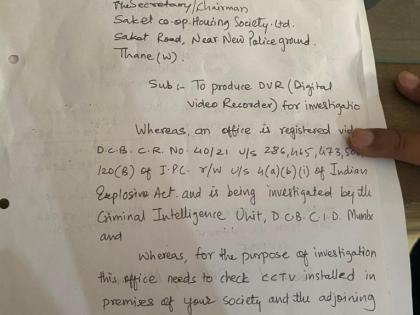 The Secretary/Chairman
Saket co-op. Housing Society. Ltd.
Saket Road, Near New Police ground.
Thane (W).
Sub :- To produce DVR (Digital
video Recorder) for investigatio
Whereas, an office is registered vide
D.C.B. C.R. NO. 40/21 U/s 286, 465, 473,
120(B) of I.P.C. r/w u/s 4(a)(b)(i) of Indian
Explosive Act. and is being investigated by the
Criminal Intelligence Unit, D.C.B. C.I.D. Mumba
and
whereas, for the purpose of investigation
this office needs to check CCTV installed in
premises of your society and the adjoining